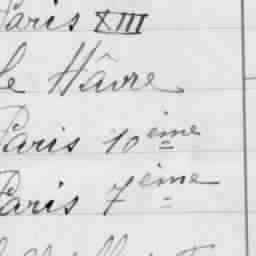 Paris XIII
le Hâvre
Paris 10 ème
Paris 7 ème